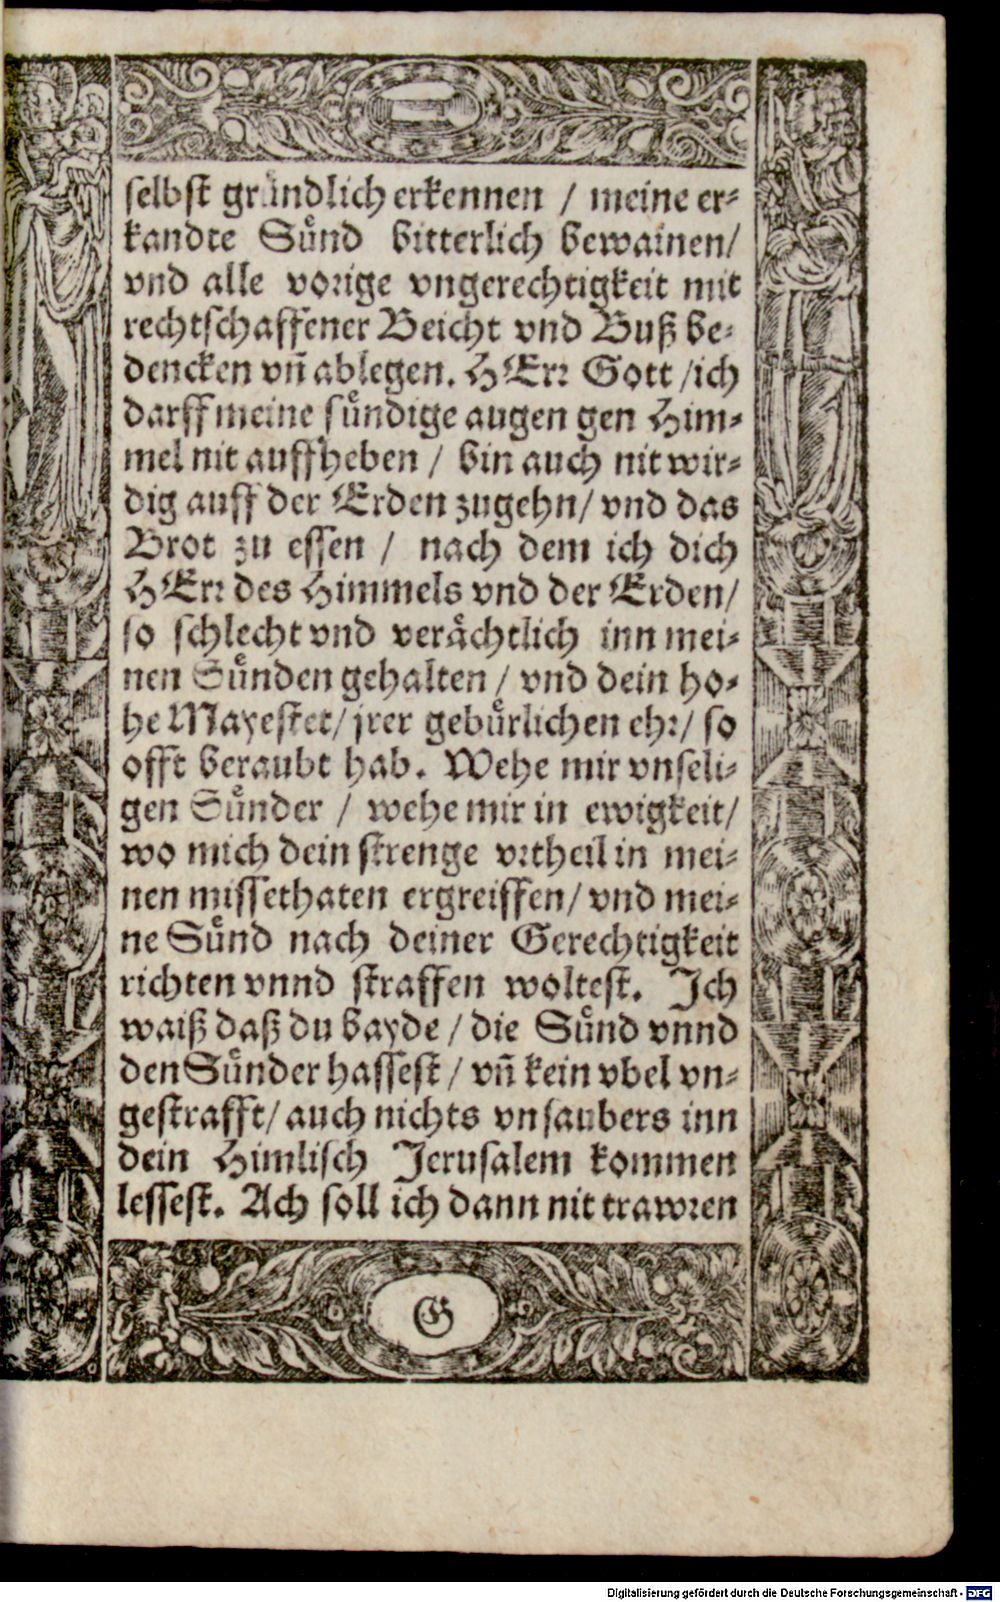 selbst gründlich erkennen / meine er-
kandte Sünd bitterlich bewainen/
vnd alle vorige vngerechtigkeit mit
rechtschaffener Beicht vnd Buß be-
dencken vñ ablegen. HErr Gott /ich
darff meine sündige augen gen Him-
mel nit auffheben / bin auch nit wir-
dig auff der Erden zugehn/ vnd das
Brot zu essen / nach dem ich dich
HErr des Himmels vnd der Erden/
so schlecht vnd verächtlich inn mei-
nen Sünden gehalten / vnd dein ho-
he Mayestet/ jrer gebürlichen ehr/ so
offt beraubt hab. Wehe mir vnseli-
gen Sünder / wehe mir in ewigkeit/
wo mich dein strenge vrtheil in mei-
nen missethaten ergreiffen/ vnd mei-
ne Sünd nach deiner Gerechtigkeit
richten vnnd straffen woltest. Ich
waiß daß du bayde / die Sünd vnnd
den Sünder hassest / vñ kein vbel vn-
gestrafft/ auch nichts vnsaubers inn
dein Himlisch Jerusalem kommen
lessest. Ach soll ich dann nit trawren
G
Digitalisierung gefördert durch die Deutsche Forschungsgemeinschaft - DFG